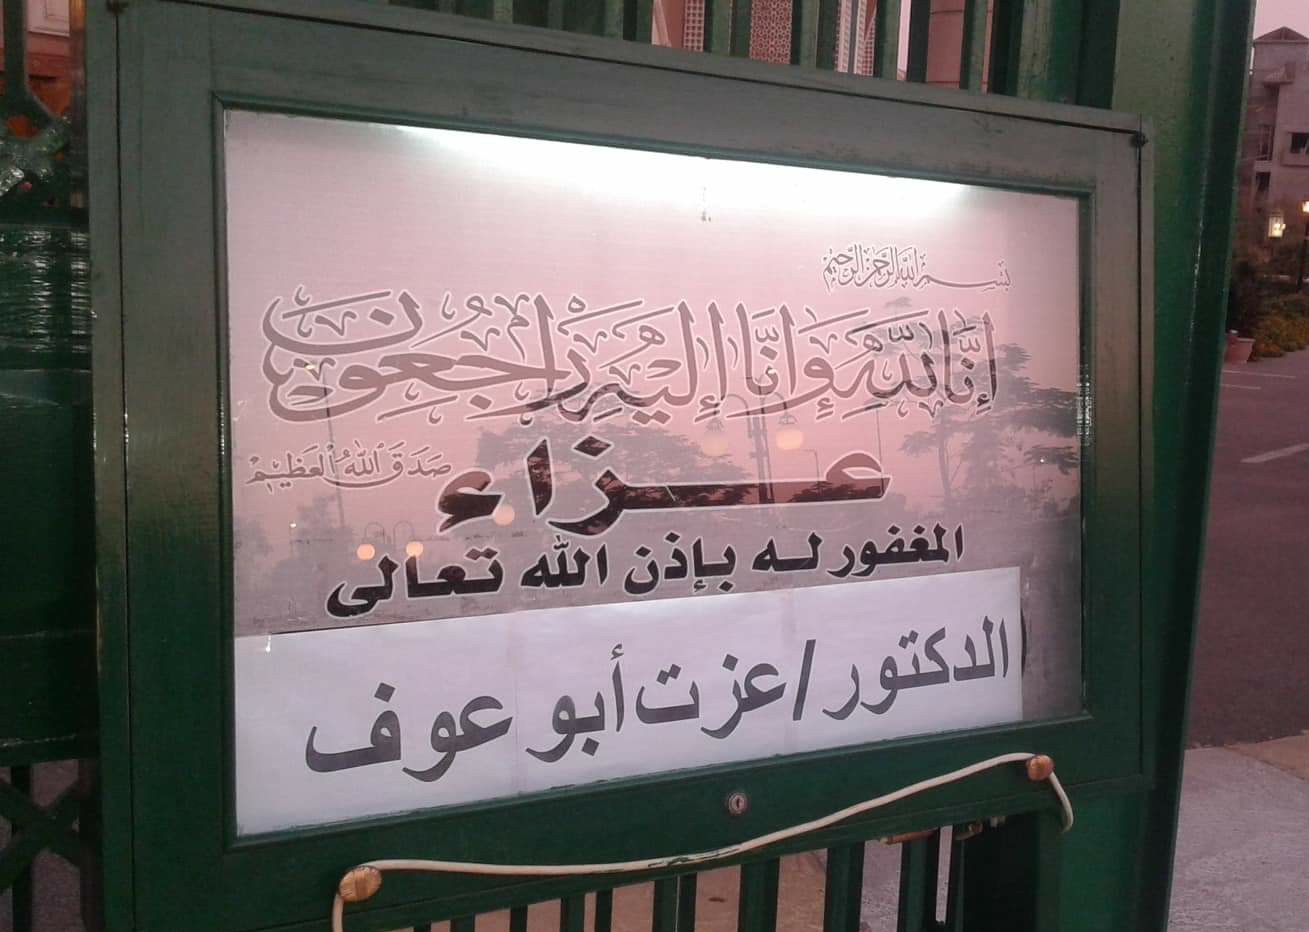 بسم الله الرحمن الرحيم
إِنَّا لِلَّهِ وَإِنَّا إِلَيْهِ رَاجِعُونَ
صَدَقَ اللهُ الْعَظِيْمْ
عـــزاء
المغفور لـه بـإذن الله تعـالى
الدكتور/عزت أبو عوف